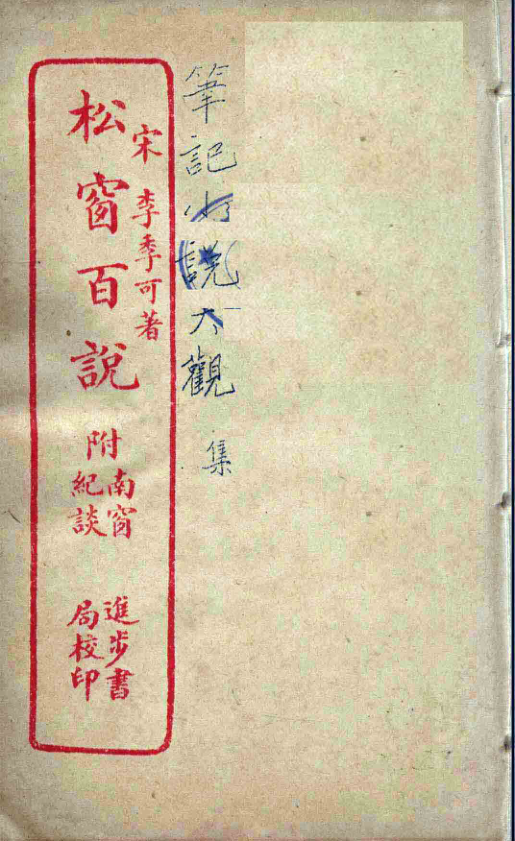 筆記小説大觀 集
宋 李季可著
松窗百說
附南窗紀談
進步書局校印